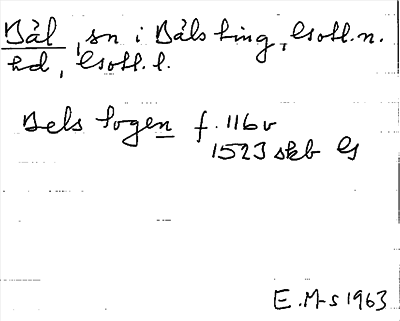 Bål, sn i Bäls ting, Gotl. n.
hd, Gotl. l.
Bels sogen f. 116v
1523 skb G
E. M-s 1963